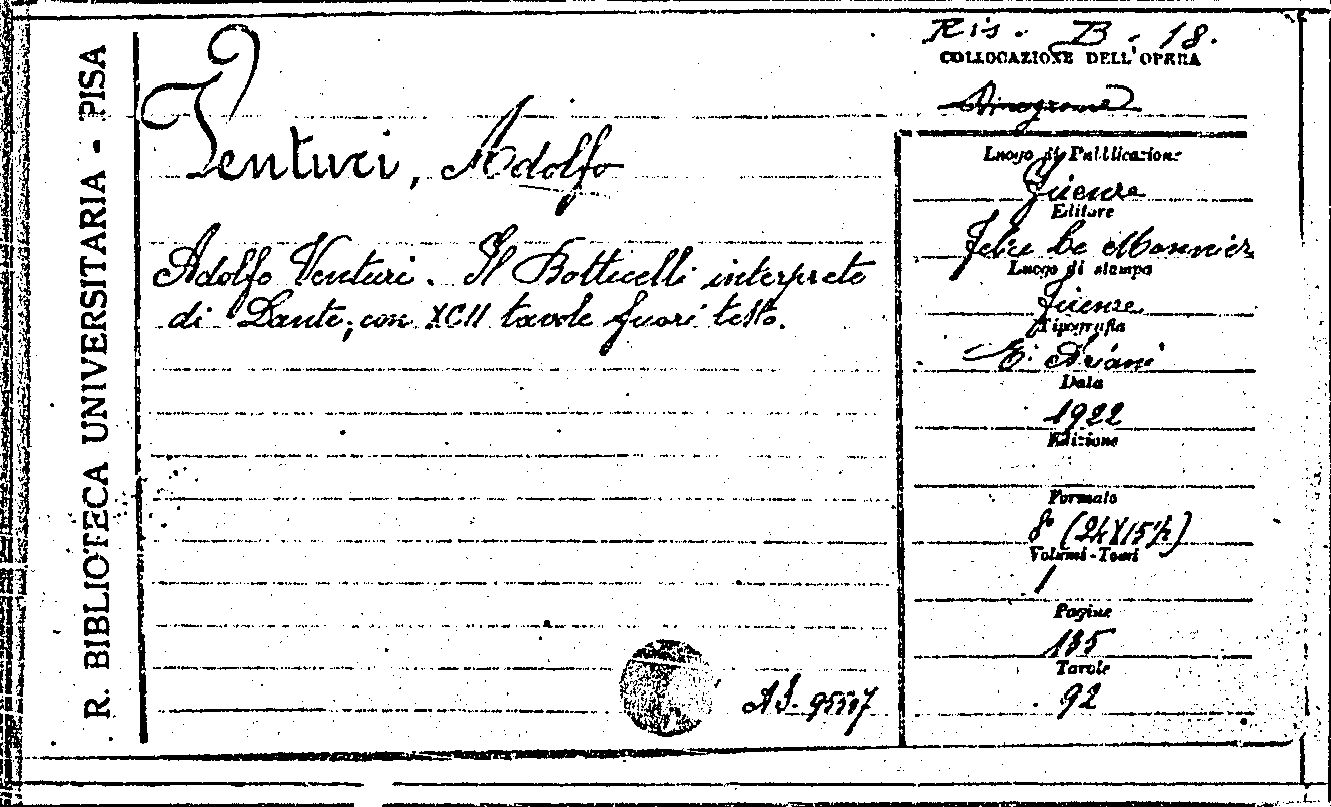 R. BIBLIOTECA UNIVERSITARIA - PISA
Ris. B. 18.
COLLOCAZIONE DELL'OPERA
Venturi, Adolfo
Adolfo Venturi. Il Botticelli interprete
di Dante, con XCII tavole fuori testo.
Luogo di Pubblicazione
Firenze
Editore
Felice Le Monnier
Luogo di stampa
Firenze
Tipografia
E. Ariani
Data
1922
Edizione
Formato
8° (24X15½)
Volumi-Tomi
1
Pagine
135
Tavole
92